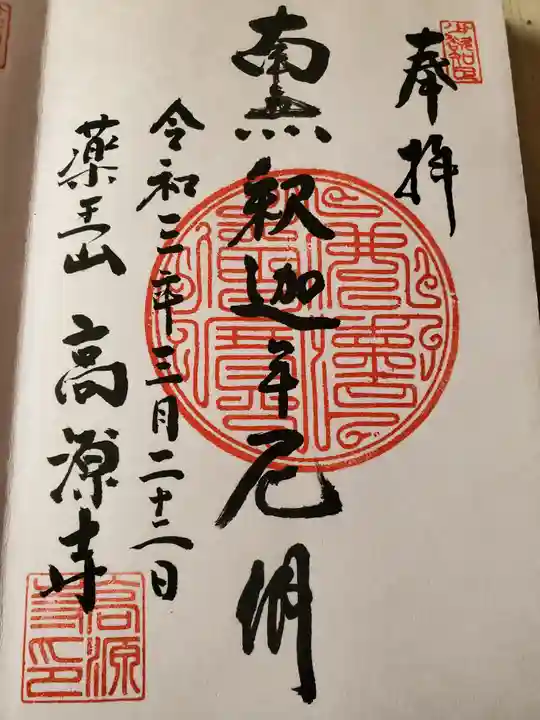 奉拝
南無釈迦牟尼佛
令和三年三月二十二日
薬王山 高源寺
高源寺印